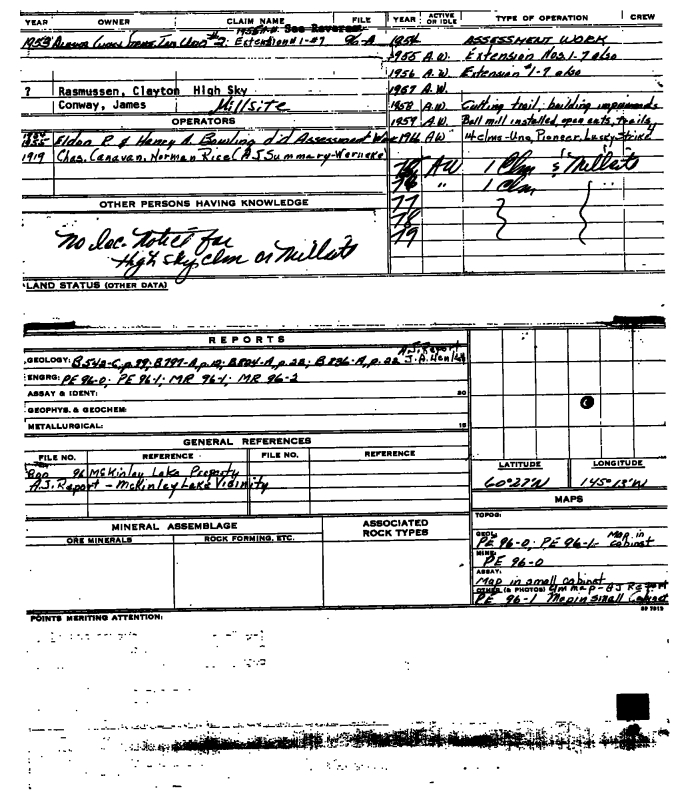 YEAR OWNER CLAIM NAME FILE YEAR ACTIVE OR IDLE TYPE OF OPERATION CREW
See Reverse
1953 #2, Extension #1-#7 96-A 1954 ASSESSMENT WORK
1955 A.W. Extension Nos 1-7 also
1956 A.W. Extension #1-7 also
? Rasmussen, Clayton High Sky 1957 A.W.
Conway, James Millsite 1958 A.W. Cutting trail, building
OPERATORS 1959 A.W. Ball mill installed, open cuts, trails
1954
1955 Eldon R. & Henry A. Bowling did Assessment Work 1966 AW 14 clms-Una, Pioneer, Lucky Strike
1919 Chas. Canavan, Norman Rice (AJ Summary-Wernecke)
AW 1 Clm & Millsite
76 " 1 Clm "
OTHER PERSONS HAVING KNOWLEDGE 77
78
79
No loc. notice for
High Sky clm or Millsite
LAND STATUS (OTHER DATA)
REPORTS
A.J. Report
GEOLOGY: B542-C, p.99; B797-A, p.12; B804-A, p.22; B836-A, p.22 J.A.
ENGRG: PE 96-0; PE 96-1; MR 96-1; MR 96-2
ASSAY & IDENT: 20
GEOPHYS. & GEOCHEM:
METALLURGICAL: 15
GENERAL REFERENCES
FILE NO. REFERENCE FILE NO. REFERENCE
96 McKinley Lake Property
A.J. Report - McKinley Lake Vicinity
LATITUDE LONGITUDE
60°27'N 145°13'W
MAPS
TOPOG:
MINERAL ASSEMBLAGE ASSOCIATED ROCK TYPES
ORE MINERALS ROCK FORMING, ETC.
GEOL: PE 96-0; PE 96-1- Map in cabinet
MINE: PE 96-0
ASSAY:
Map in small cabinet
OTHER (& PHOTOS) Clm map-AJ Report
PE 96-1 Map in small Cabinet
POINTS MERITING ATTENTION: